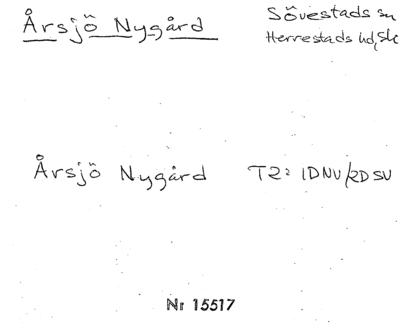 Årsjö Nygård
Sövestads sn
Herrestads hd, Sk
Årsjö Nygård T2: 1DNV/2DSV
Nr 15517